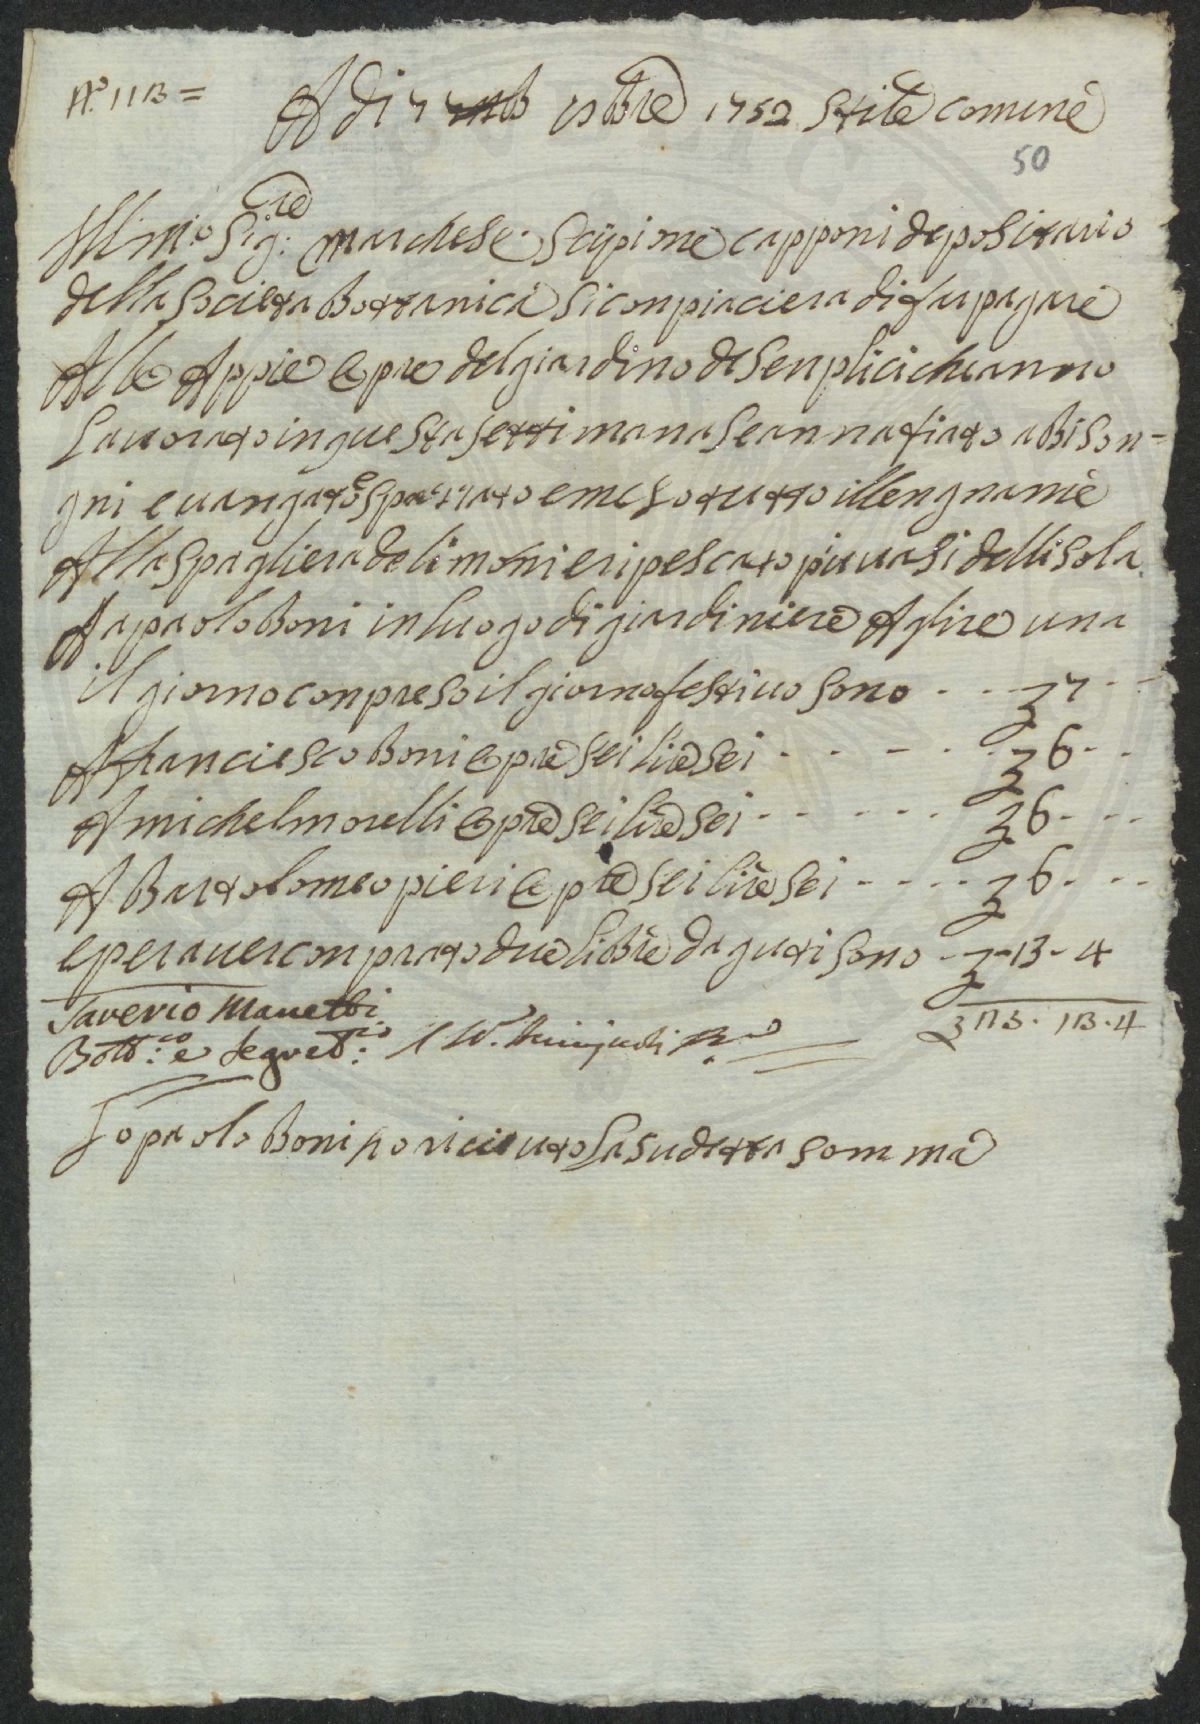 N.º 113 =
A di 7 10bre 1752 Stile comune
50
Illmo: Sigre: Marchese Scipione Capponi depositario
della Societa Bottanica si conpiaciera di far pagare
Alle Appie Opre del giardino de Senplici che anno
Lauorato in questa settimana se annafiato a Bison=
gni e uangato e spazzato e meso tutto illengname
Alla Spagliera de limoni e ripescato piu uasi dell isola
A paolo Boni in luogo di giardiniere A lire una
il giorno conpreso il giorno festiuo sono - - - £ 7 - -
A franciesco Boni Opre sei lire sei - - - - - - £ 6 - -
A michel morelli Opre sei lire sei - - - - - - £ 6 - - -
A Bartolomeo pieri Opre sei lire sei - - - - £ 6 - - -
e per auer conprato due Libbre d aguti sono - £ - 13 - 4
Saverio Manetti
Bott:co e Segret:rio
£ 25 . 13 . 4
Io paolo Boni ho riceuuto La sudetta somma